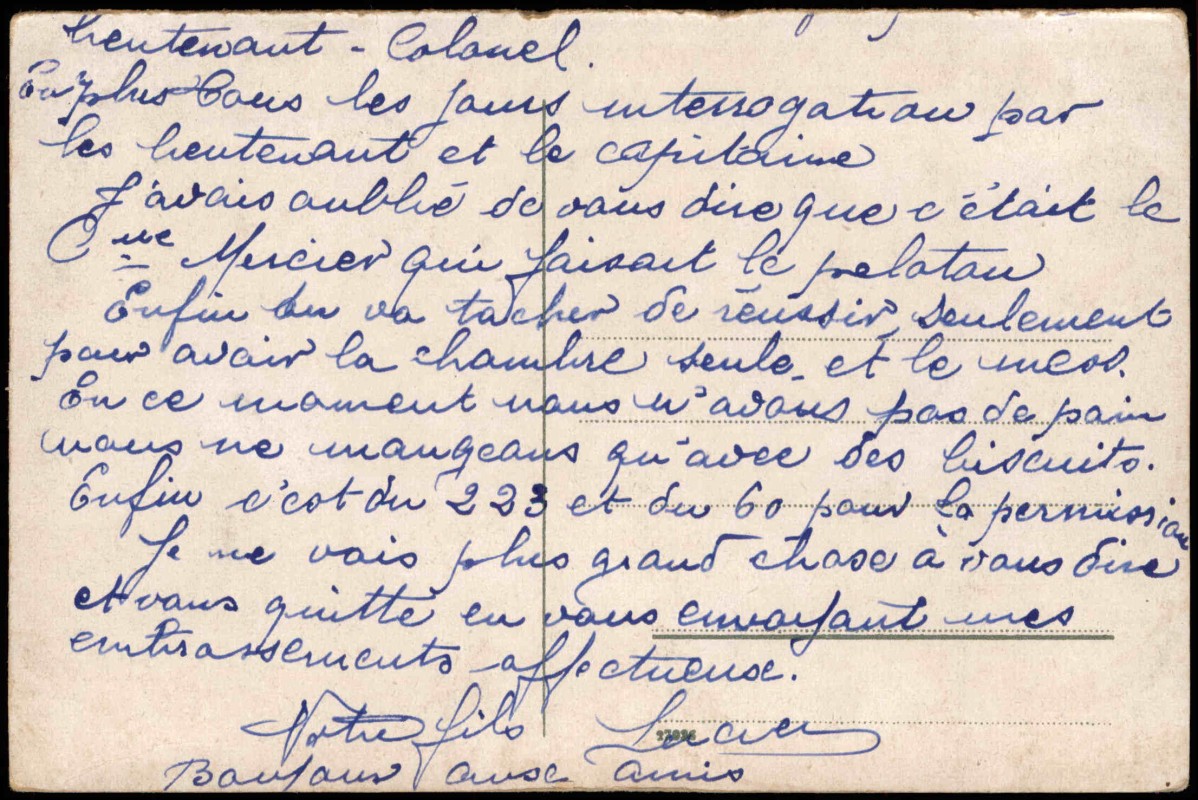 lieutenant - Colonel.
En plus tous les jours interrogation par
les lieutenant et le capitaine
J'avais oublié de vous dire que c'était le
Cne Mercier qui faisait le peloton
Enfin on va tacher de réussir, seulement
pour avoir la chambre seule, et le mess.
En ce moment nous n'avons pas de pain
nous ne mangeons qu'avec des biscuits.
Enfin c'est du 223 et du 60 pour la permission
Je ne vois plus grand chose à vous dire
et vous quitte en vous envoyant mes
embrassements affectueux.
Votre fils Lucien
Bonjour aux amis